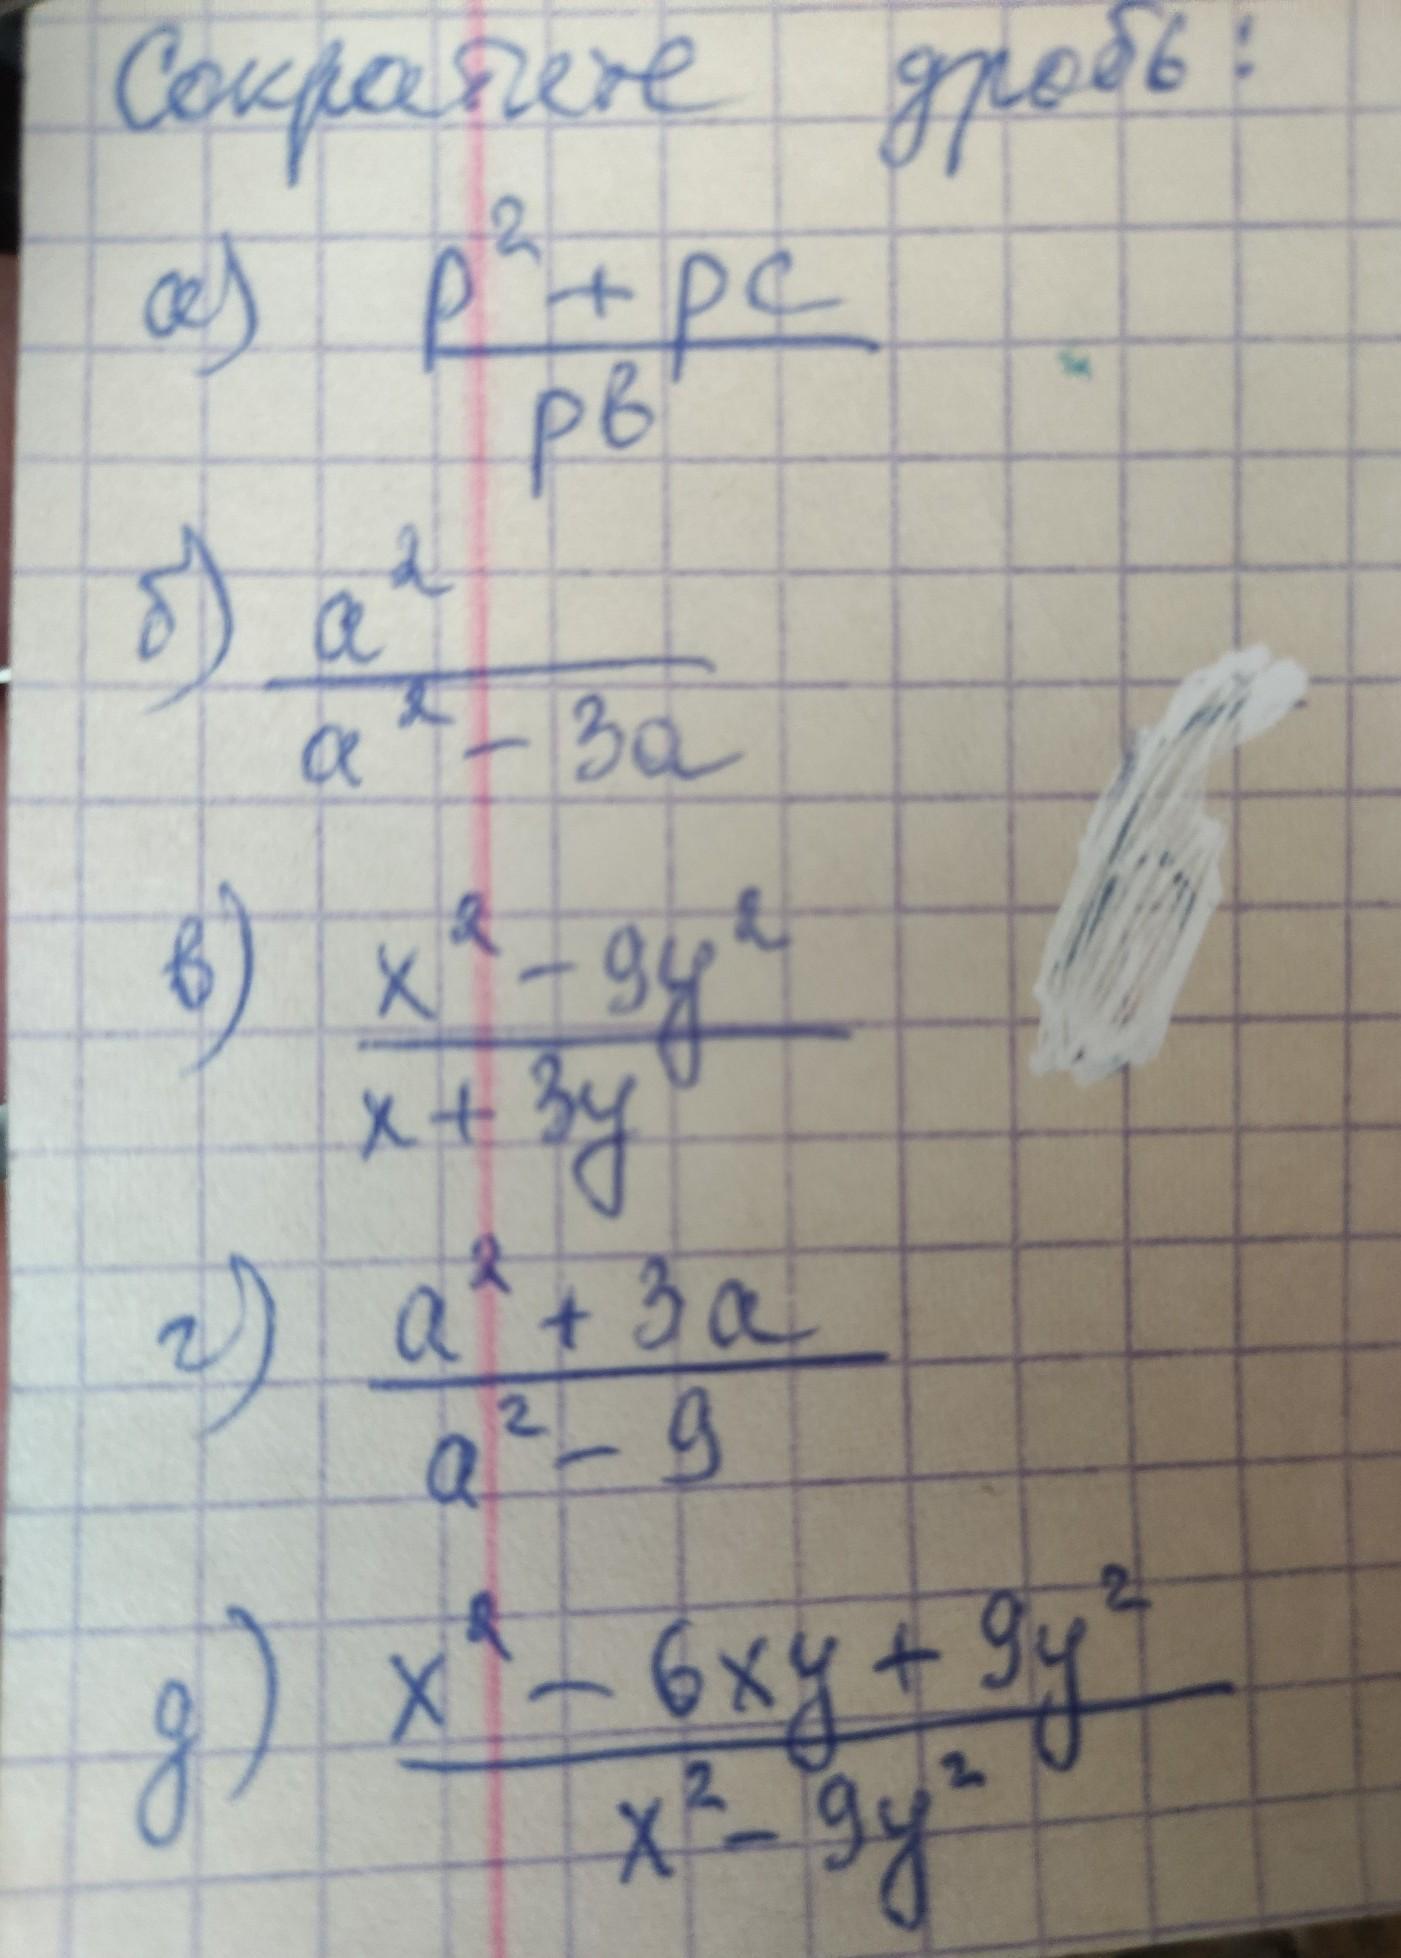 Сократите дробь:
а) p² + pc
pb
б) a²
a² - 3a
в) x² - 9y²
x + 3y
г) a² + 3a
a² - 9
д) x² - 6xy + 9y²
x² - 9y²